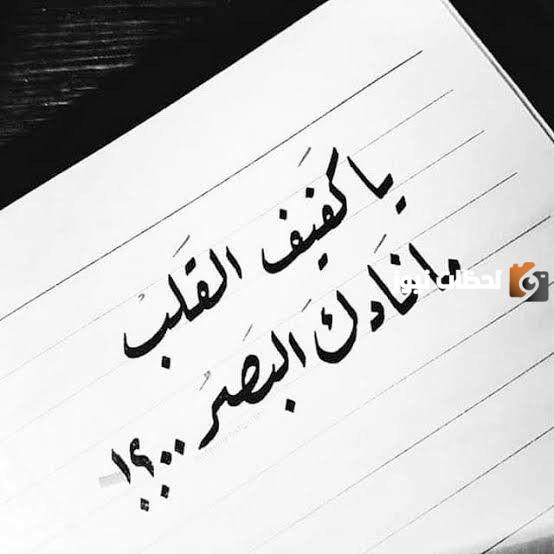 يا كفيف القَلبْ
ما فَادكَ البَصرُ ..؟!
لحظات نيوز